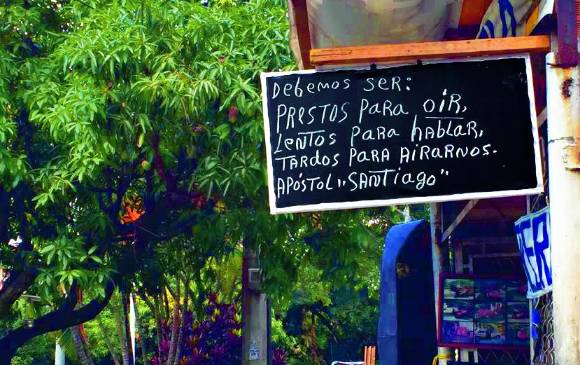 Debemos SER:
PRESTOS PARA OíR,
LENTOS PARA hABLAR,
TARDOS PARA AiRARNOS.
APÓSTOL "SANTiago"
ER